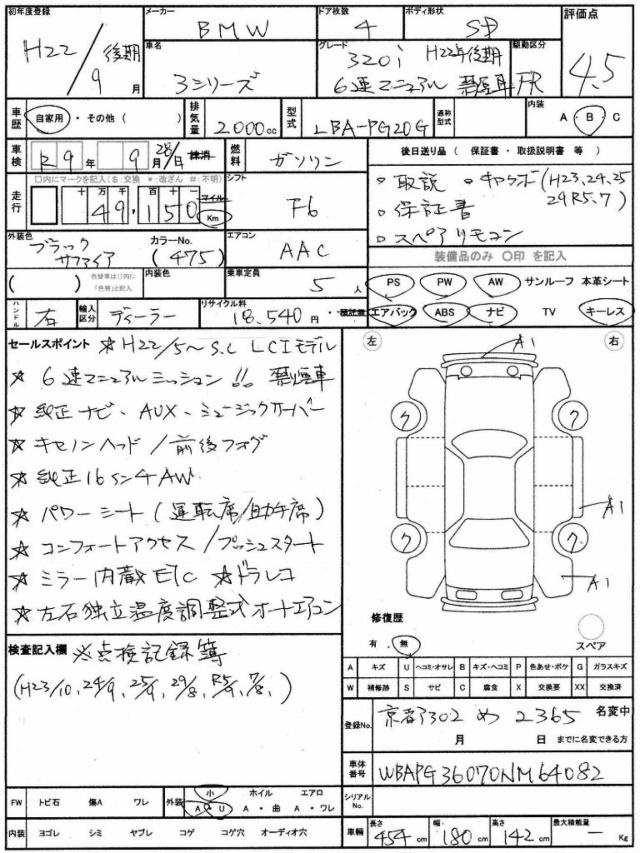 初年度登録 メーカー BMW ドア枚数 4 ボディ形状 SD 評価点 4.5
H22/9月 後期 車名 3シリーズ グレード 320i H22年後期 駆動区分 FR
6速マニュアル 禁煙車
車歴 自家用・その他( ) 排気量 2000cc 型式 LBA-PG20G 通称型式 内装 A・B・C
車検 R9年 9月 28/日 抹消 燃料 ガソリン 後日送り品( 保証書・取扱説明書 等 )
□内にマークを記入($:交換 *:改ざん #:不明) シフト F6
走行 十 万 千 百 十 一 49,150 マイル Km
・取説 ・キロクボ(H23,24,25
29R5.7)
・保証書
・スペアリモコン
外装色 ブラックサファイア カラーNo. (475) エアコン AAC 装備品のみ 〇印 を記入
( ) 色替車は□内に「色替」と記入 内装色 乗車定員 5人 PS PW AW サンルーフ 本革シート
ハンドル 右 輸入区分 ディーラー リサイクル料 18,540円 エアバック ABS ナビ TV キーレス
セールスポイント ☆H22/5~ S.C LCIモデル
☆ 6速マニュアルミッション!! 禁煙車
☆ 純正ナビ、AUX、ミュージックサーバー
☆ キセノンヘッド/前後フォグ
☆ 純正16インチAW
☆ パワーシート(運転席/助手席)
☆ コンフォートアクセス/プッシュスタート
☆ ミラー内蔵ETC ☆ドラレコ
☆ 左右独立温度調整式オートエアコン
左 右
A1
ク ク
A1
ク ク
A1
修復歴
有・無 スペア
検査記入欄 ※点検記録簿
(H23/10,24/9,25/9,29/8,R5/9,7/8,)
A キズ U ヘコミ・オサレ B キズ・ヘコミ P 色あせ・ボケ G ガラスキズ
W 補修跡 S サビ C 腐食 X 交換要 XX 交換済
登録No. 京都302 め 2365 名変中
月 日 までに名変できる方
車体番号 WBAPG36070NM64082
FW トビ石 傷A ワレ 外装 小 ホイル エアロ シリアルNo.
A・U A・曲 A・ワレ
内装 ヨゴレ シミ ヤブレ コゲ コゲ穴 オーディオ穴 車輛 長さ 454cm 幅 180cm 高さ 142cm 最大積載量 ー Kg